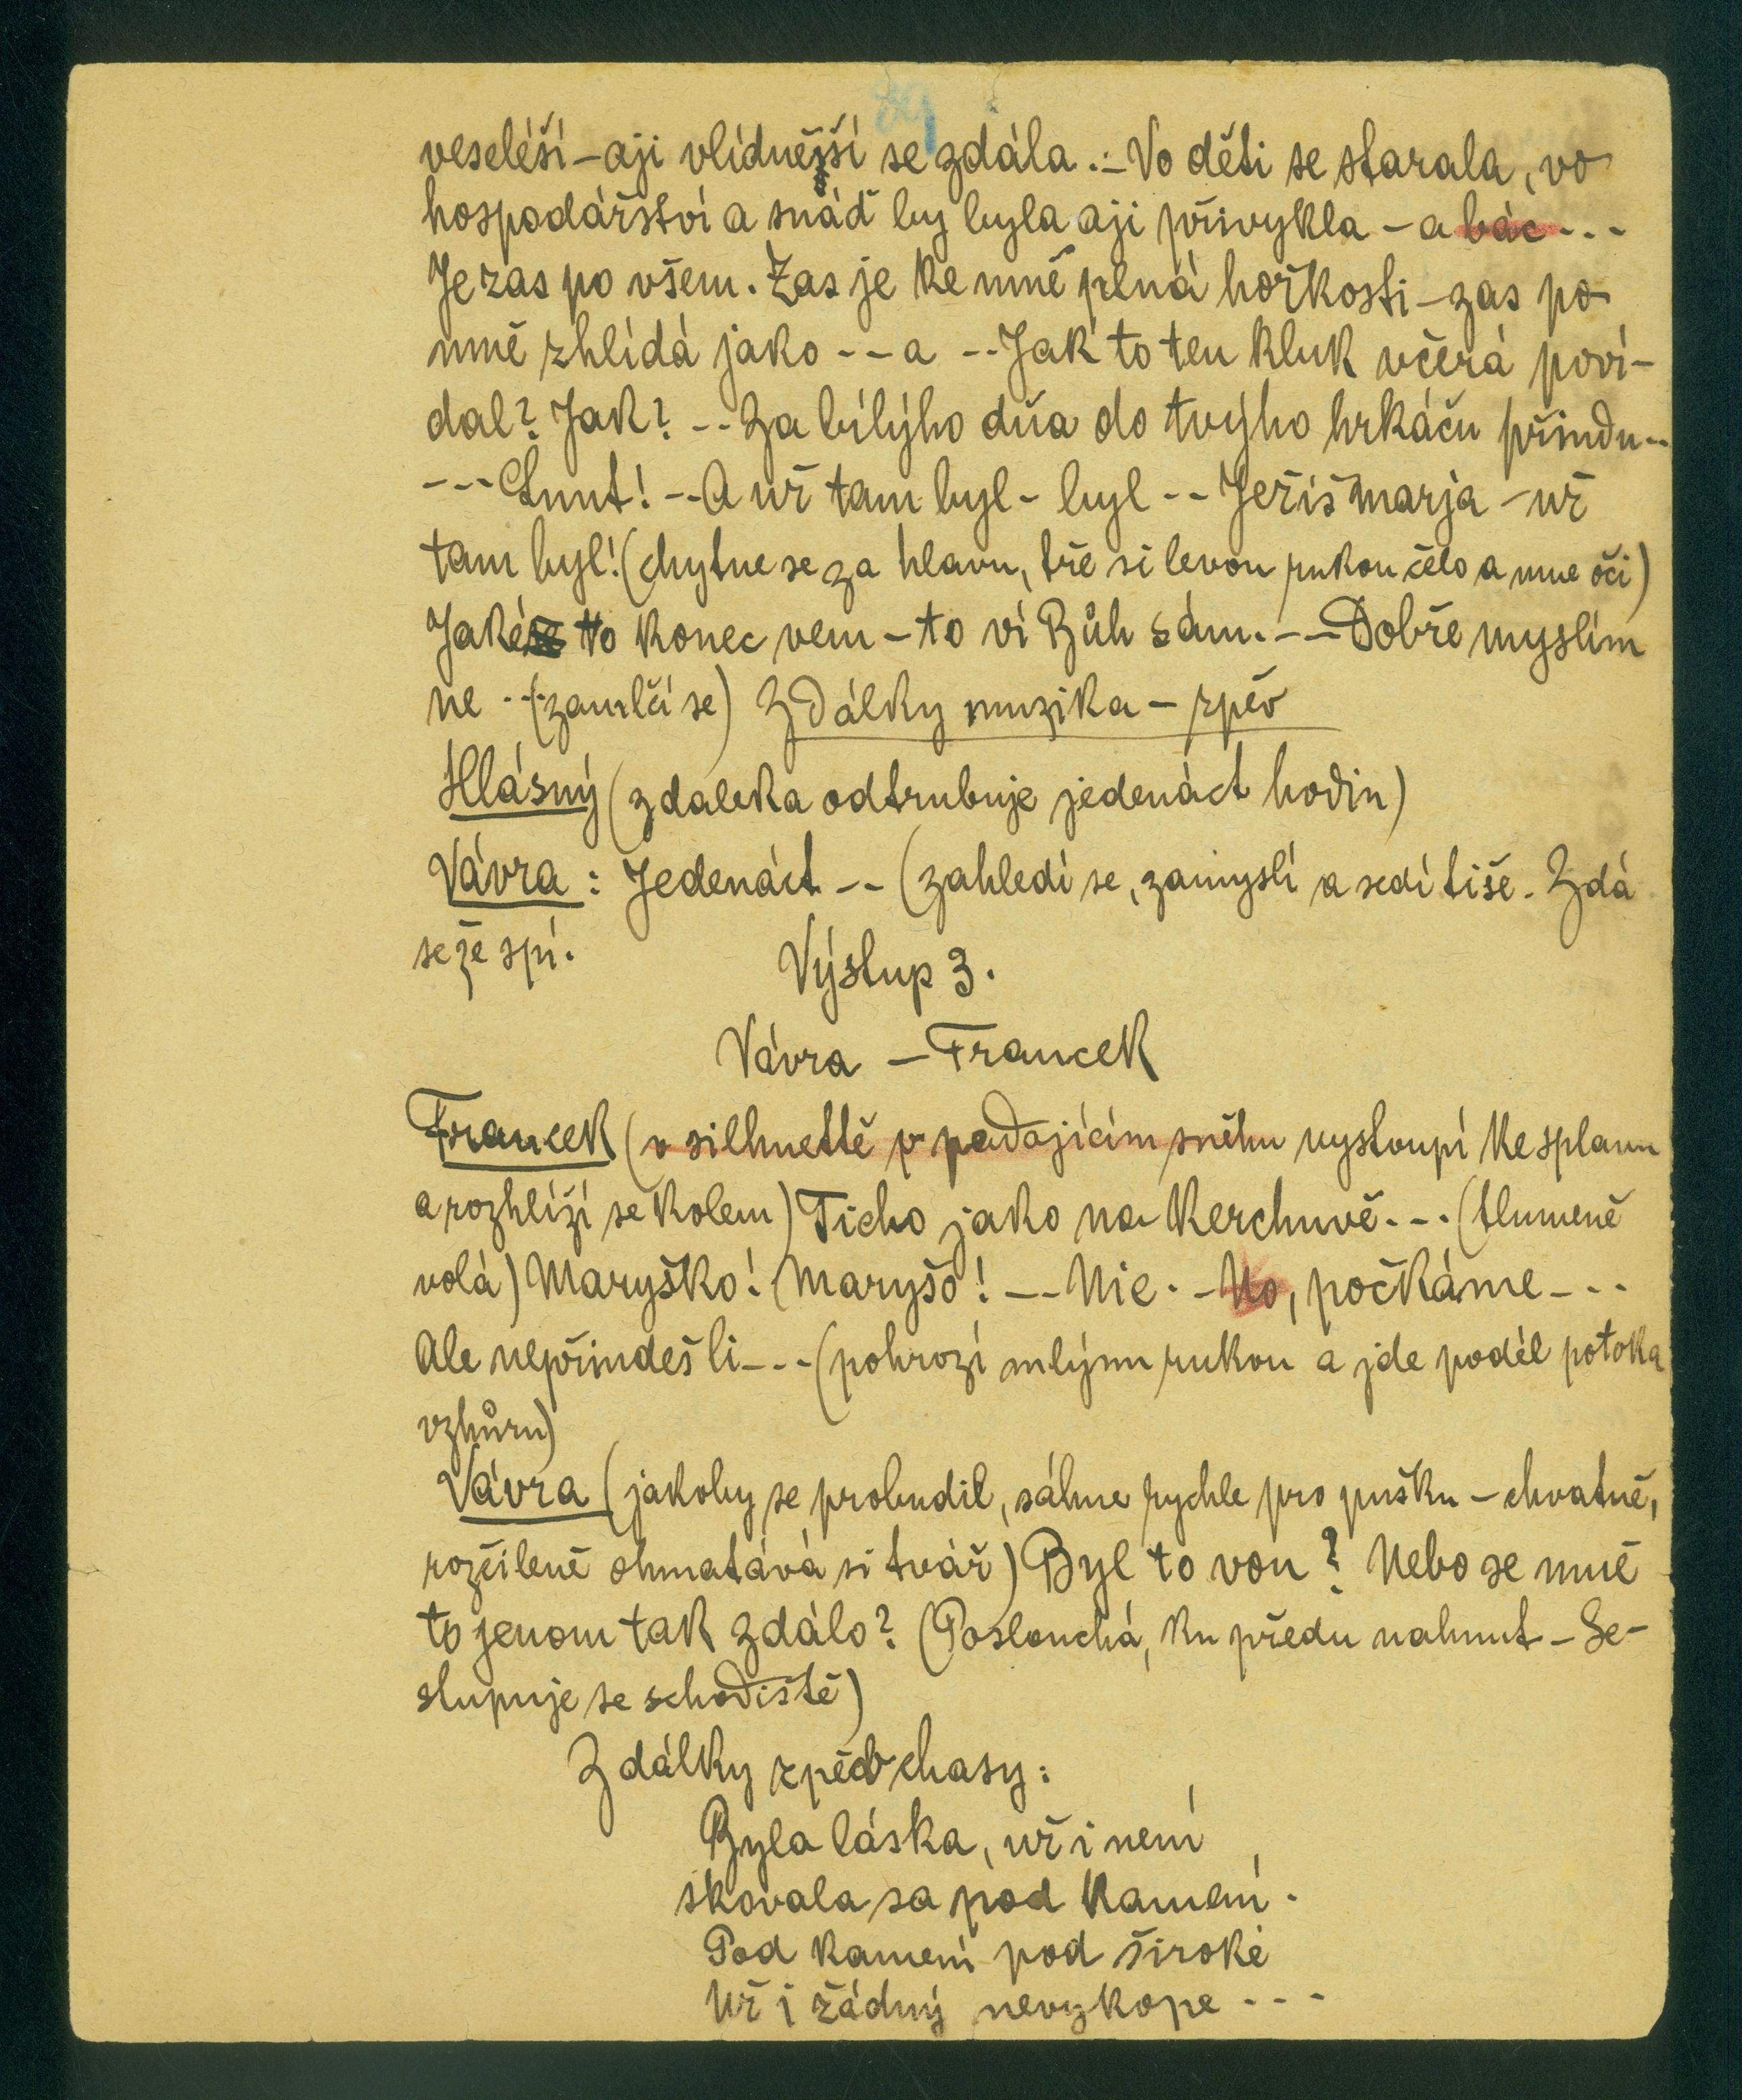 89
veseléší – aji vlídnější se zdála. – Vo děti se starala, vo
hospodářství a snáď by byla aji přivykla – a bác - - -
Je zas po všem. Zas je ke mně plná hořkosti – zas po
mně zhlídá jako - - a - - Jak to ten kluk včerá poví-
dal? Jak? - - Za bílýho dňa do tvýho hrkáču přindu - -
- - - Čunt! - - A už tam byl - byl - - Ježíš marja - už
tam byl! (chytne se za hlavu, tře si levou rukou čelo a mne oči)
Jaké to konec vem – to ví Bůh sám. - - Dobře myslím
ne - - - (zamlčí se) Z dálky muzika – zpěv
Hlásný (zdaleka odtrubuje jedenáct hodin)
Vávra: Jedenáct - - (zahledí se, zamyslí a sedí tiše. Zdá
se že spí.
Výstup 3.
Vávra – Francek
Francek (v silhuettě v padajícím sněhu vystoupí ke splavu
a rozhlíží se kolem) Ticho jako na kerchuvě - - . (tlumeně
volá) Maryško! Maryšo! - - Nic. - No, počkáme - - -
Ale nepřindeš li - - - (pohrozí mlýnu rukou a jde podél potoka
vzhůru)
Vávra (jakoby se probudil, sáhne rychle pro pušku – chvatně,
rozčileně ohmatává si tvář) Byl to von? Nebo se mně
to jenom tak zdálo? (Poslouchá, ku předu nahnut – Se-
stupuje se schodiště)
Z dálky zpěv chasy:
Byla láska, už i není
skovala sa pod kamení.
Pod kamení pod široké
Už i žádný nevykope - - -